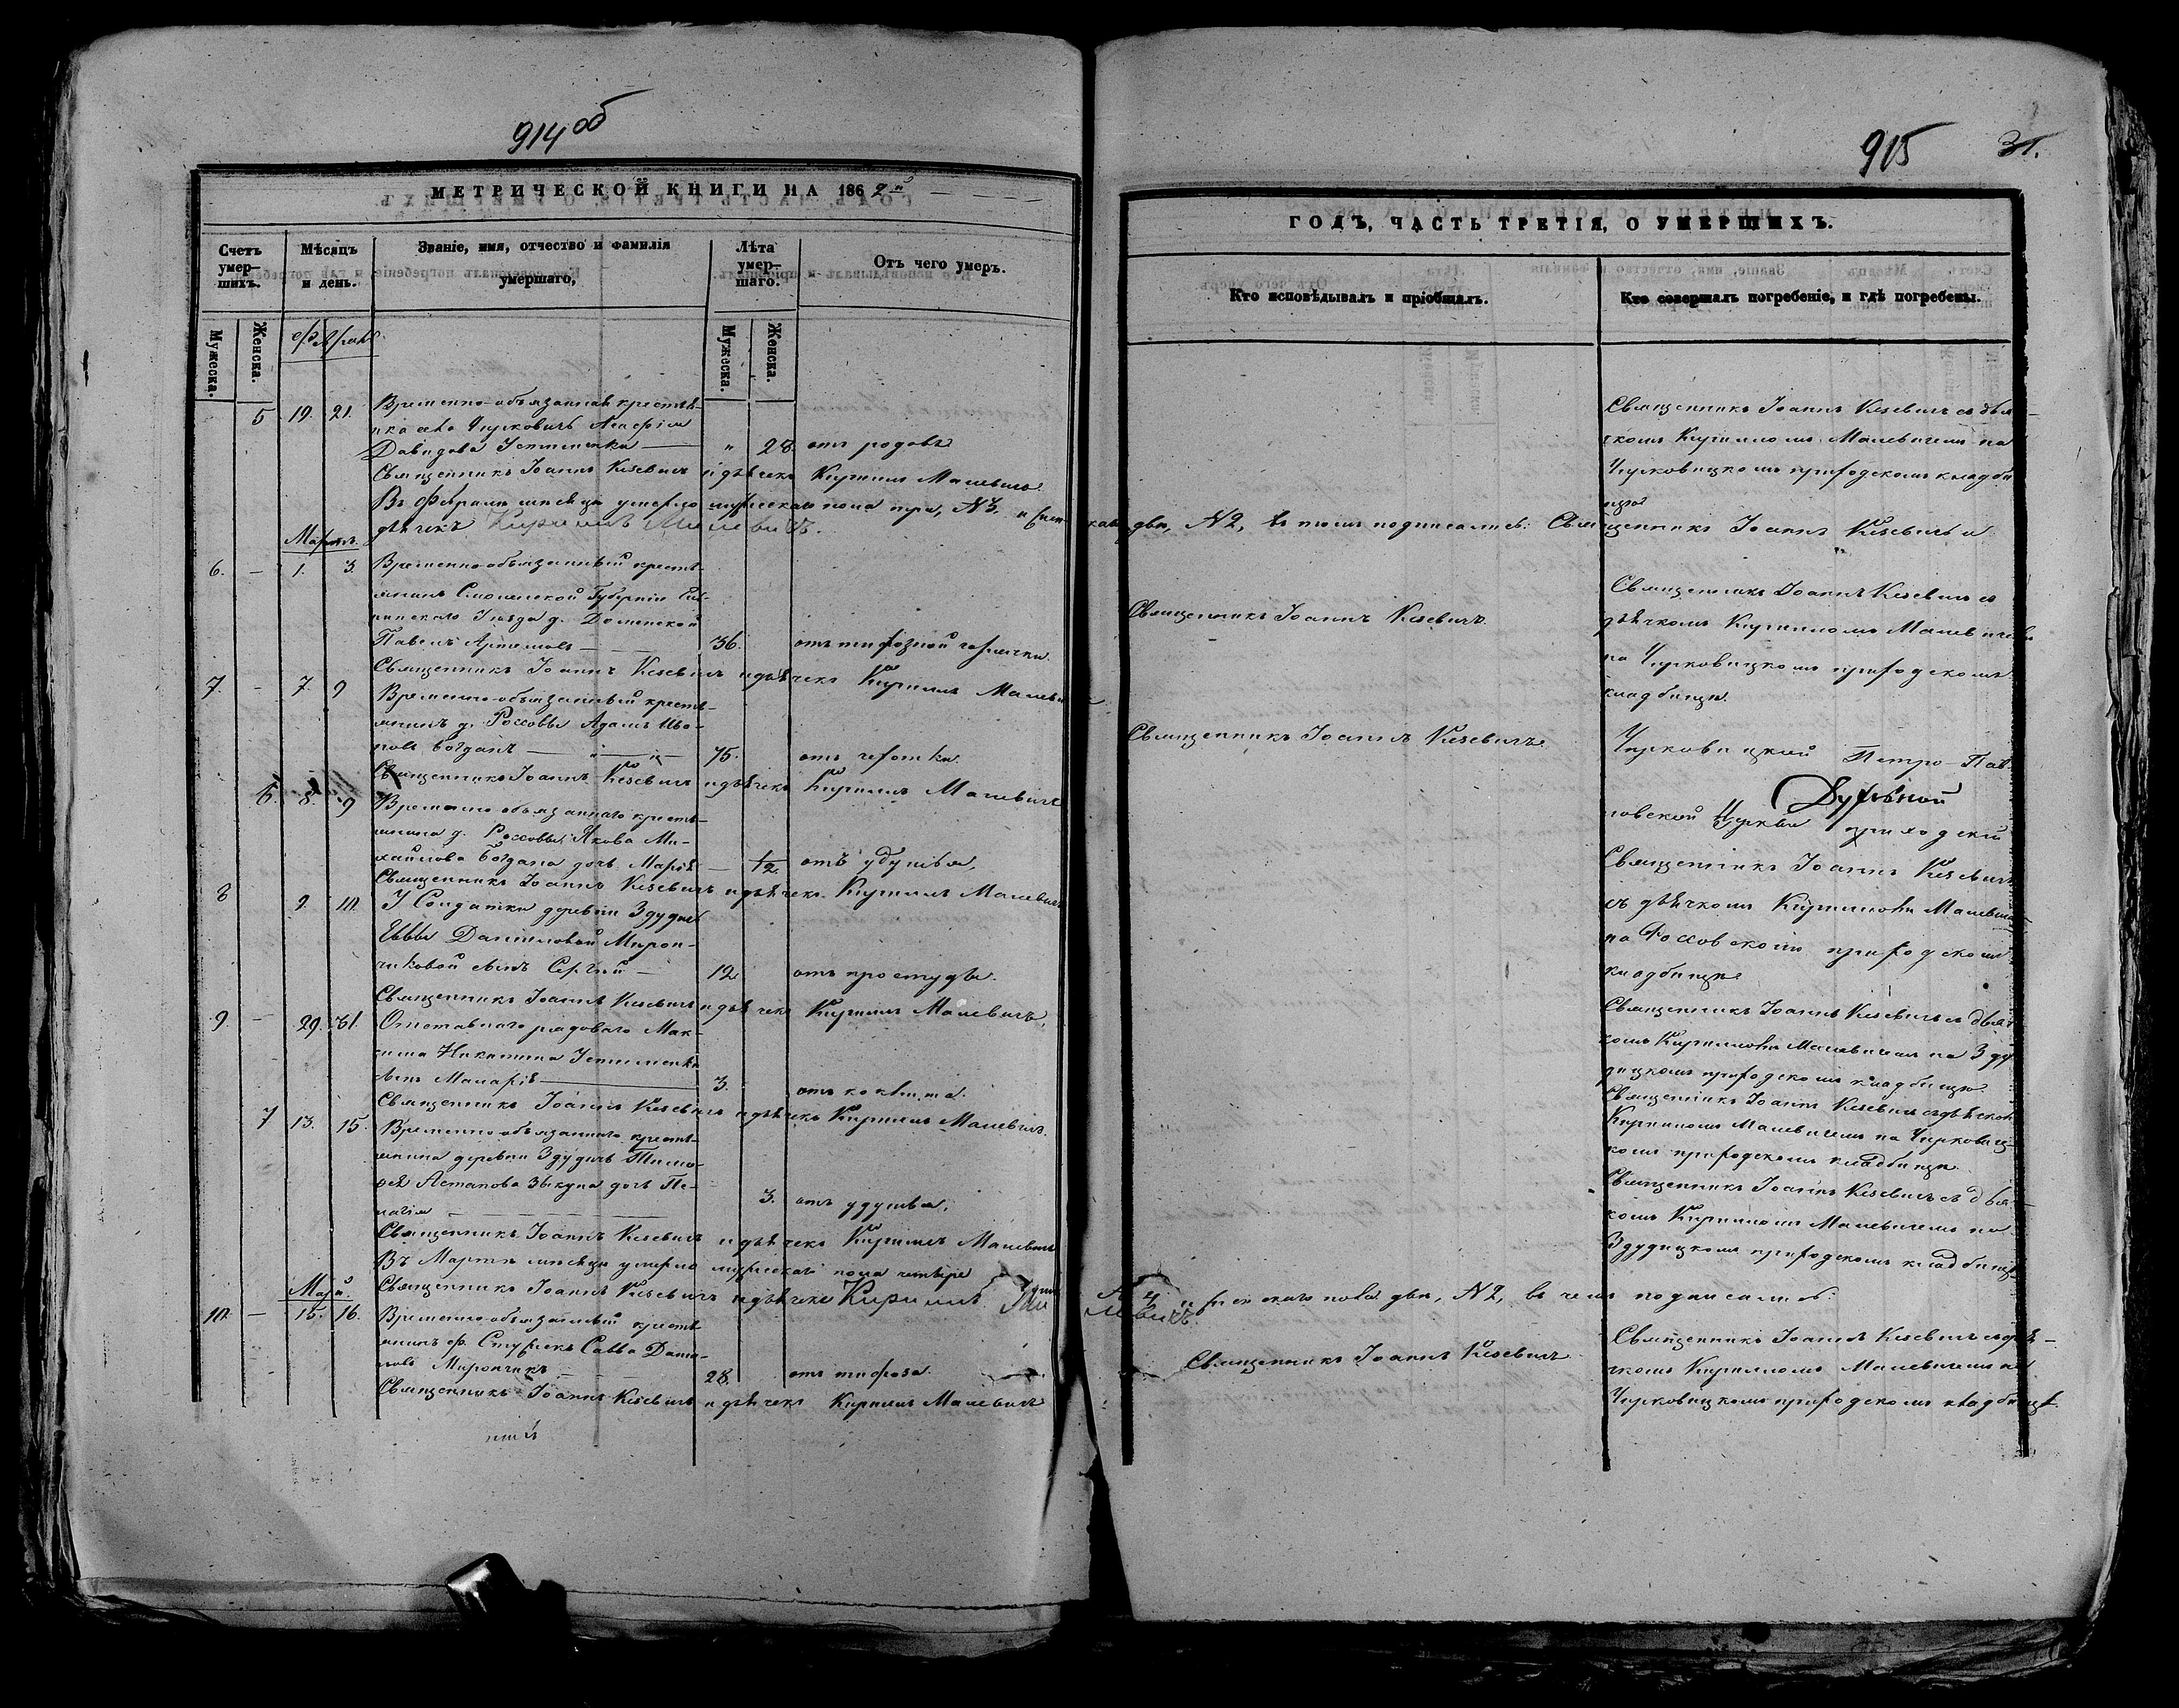 914 об
МЕТРИЧЕСКОЙ КНИГИ НА 1862 й
Счетъ умер-шихъ.
Мѣсяцъ и день.
Званіе, имя, отчество и фамилія умершаго,
Лѣта умер-шаго.
Отъ чего умеръ.
Мужеска.
Женска.
Мужеска.
Женска.
5 19. 21. Временно-обязанная крестья-
нка села Чирковичъ Агафія
Давидова Устименка — " 28. отъ родовъ
Священникъ Іоаннъ Кизевичъ и дьячекъ Кириллъ Малевичъ
Въ Февралѣ мѣсяцѣ умерло мужескаго пола три, №3, и жен-
дьячекъ Кириллъ Малевичъ.
Мартъ.
6. — 1. 3. Временнообязанный кресть-
янинъ Смоленской Губерніи
Уѣзда д.
Павелъ Артемовъ — 36. отъ тифозной горячки.
Священникъ Іоаннъ Кизевичъ и дьячекъ Кириллъ Малевичъ
7. — 7. 9 Временно-обязанный кресть-
янинъ д. Россовы Адамъ Ива-
новъ Богданъ — 75. отъ чахотки.
Священникъ Іоаннъ Кизевичъ и дьячекъ Кириллъ Малевичъ
6. 8. 9 Временно обязаннаго кресть-
янина д. Россовы Якова Ми-
хайлова Богдана дочь Марія — 1/2 отъ удушья,
Священникъ Іоаннъ Кизевичъ и дьячекъ Кириллъ Малевичъ
8 9. 10. У Солдатки деревни Здудичъ
Еввы Даниловой Мирон-
чиковой сынъ Сергій — 12. отъ простуды.
Священникъ Іоаннъ Кизевичъ и дьячекъ Кириллъ Малевичъ,
9. — 29. 31. Отставнаго рядоваго Мак-
сима Никитина Устименки
сынъ Макарій — 3. отъ коклюша.
Священникъ Іоаннъ Кизевичъ и дьячекъ Кириллъ Малевичъ.
7 13. 15. Временно обязаннаго кресть-
янина деревни Здудичъ Тимо-
фея Астапова Зыкуна дочь Пе-
лагія — 3. отъ удушья,
Священникъ Іоаннъ Кизевичъ и дьячекъ Кириллъ Малевичъ
Въ Мартѣ мѣсяцѣ умерло мужескаго пола четыре
Священникъ Іоаннъ Кизевичъ и дьячекъ Кириллъ Ма
Май.
10. — 15. 16. Временно обязанный кресть-
янинъ Савва Дани-
ловъ Мирончикъ — 28. отъ тифоза.
Священникъ Іоаннъ Кизевичъ и дьячекъ Кириллъ Малевичъ
915
ГОДЪ, ЧАСТЬ ТРЕТІЯ, О УМЕРШИХЪ.
Кто исповѣдывалъ и пріобщалъ.
Кто совершалъ погребеніе, и гдѣ погребены.
Священникъ Іоаннъ Кизевичъ съ дья-
чкомъ Кирилломъ Малевичемъ на
Чирковицкомъ приходскомъ кладби
щѣ
скаго два, №2, въ томъ подписались: Священникъ Іоаннъ Кизевичъ и
Священникъ Іоаннъ Кизевичъ
Священникъ Іоаннъ Кизевичъ съ
дьячкомъ Кирилломъ Малевичемъ
на Чирковицкомъ приходскомъ
кладбищѣ.
Священникъ Іоаннъ Кизевичъ
Чирковицкой Петро-Пав
ловской Церкви приходскій
Священникъ Іоаннъ Кизевичъ
съ дьячкомъ Кирилломъ Малевичемъ
на Россовскомъ приходскомъ
кладбищѣ
Священникъ Іоаннъ Кизевичъ съ дьяч
комъ Кирилломъ Малевичемъ на Зду
дицкомъ приходскомъ кладбищѣ.
Священникъ Іоаннъ Кизевичъ съ дьячкомъ
Кирилломъ Малевичемъ на Чирковиц-
комъ приходскомъ кладбищѣ.
Священникъ Іоаннъ Кизевичъ съ дьяч
комъ Кирилломъ Малевичемъ на
Здудицкомъ приходскомъ кладбищѣ
4, и женскаго пола два, №2, въ чемъ подписались:
левичъ.
Священникъ Іоаннъ Кизевичъ
Священникъ Іоаннъ Кизевичъ съ дья-
чкомъ Кирилломъ Малевичемъ на
Чирковицкомъ приходскомъ кладбищѣ.